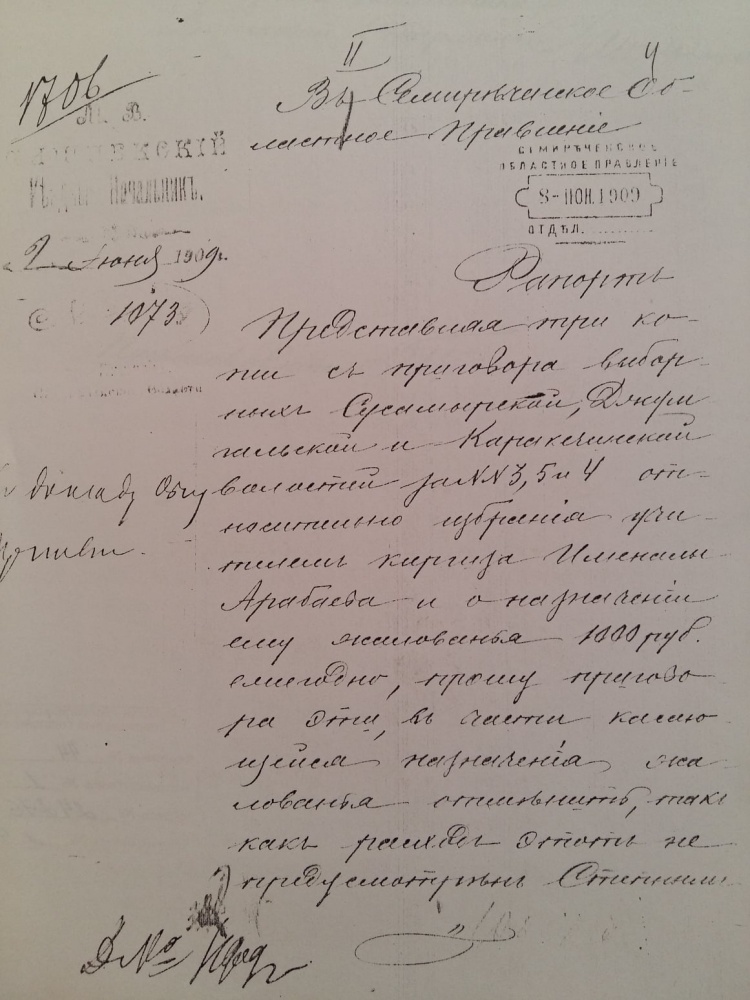 II
4
1706
Въ Семирѣченское Об-
ластное Правленіе
М. В.
Уѣздный Начальникъ.
2 Июня 1909г.
1873
СЕМИРѢЧЕНСКОЕ
ОБЛАСТНОЕ ПРАВЛЕНІЕ
8- ІЮН. 1909
ОТДѢЛ.
Рапортъ
Представляя три ко-
піи съ приговора выбор-
ныхъ Сусамырской, Джум
гальской и Каракечинской
волостей за NN 3, 5 и 4 от-
носительно избранія учи-
телемъ киргиза Именалы
Арабаева и о назначеніи
ему жалованья 1000 руб.
ежегодно, прошу пригово-
ра эти, въ части касаю-
щейся назначенія жа-
лованья отмѣнить, такъ
какъ расходъ этотъ не
предусмотрѣнъ Степнымъ
къ докладу Общ